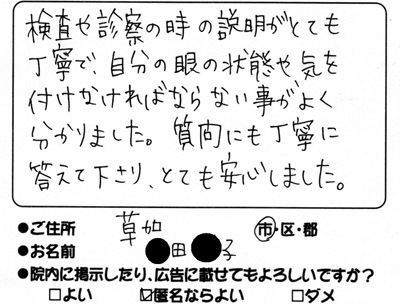 検査や診察の時の説明がとても
丁寧で、自分の眼の状態や気を
付けなければならない事がよく
分かりました。質問にも丁寧に
答えて下さり、とても安心しました。
●ご住所 草加 市・区・郡
●お名前 ●田●子
●院内に掲示したり、広告に載せてもよろしいですか?
□よい ☑匿名ならよい □ダメ